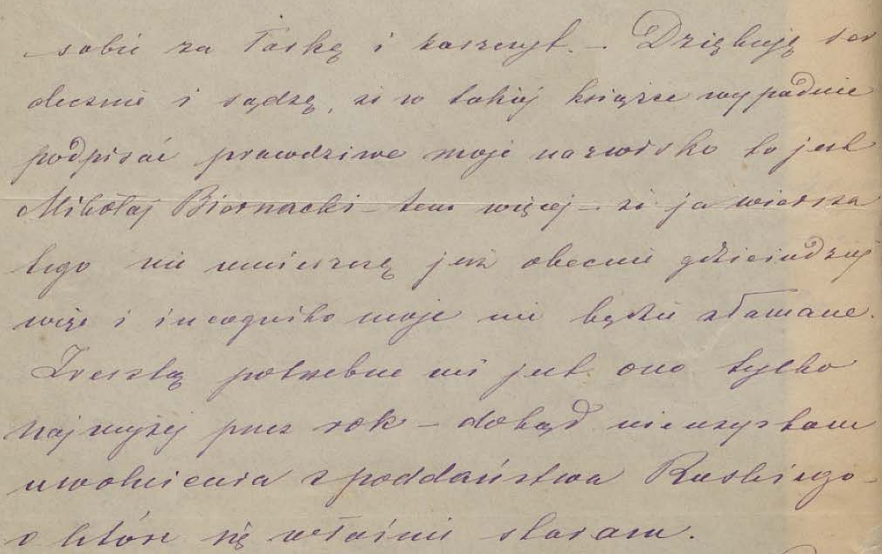 sobie za łaskę i zaszczyt. – Dziękuję ser
decznie i sądzę, że w takiej książce wypadnie
podpisać prawdziwe moje nazwisko to jest
Mikołaj Biernacki – tem więcej – że ja wiersza
tego nie umieszczę już obecnie gdzieindziej
więc i incognito moje nie będzie złamane.
Zresztą potrzebne mi jest ono tylko
najwyżej przez rok – dokąd nie uzyskam
uwolnienia z poddaństwa Ruskiego –
o które się właśnie staram.